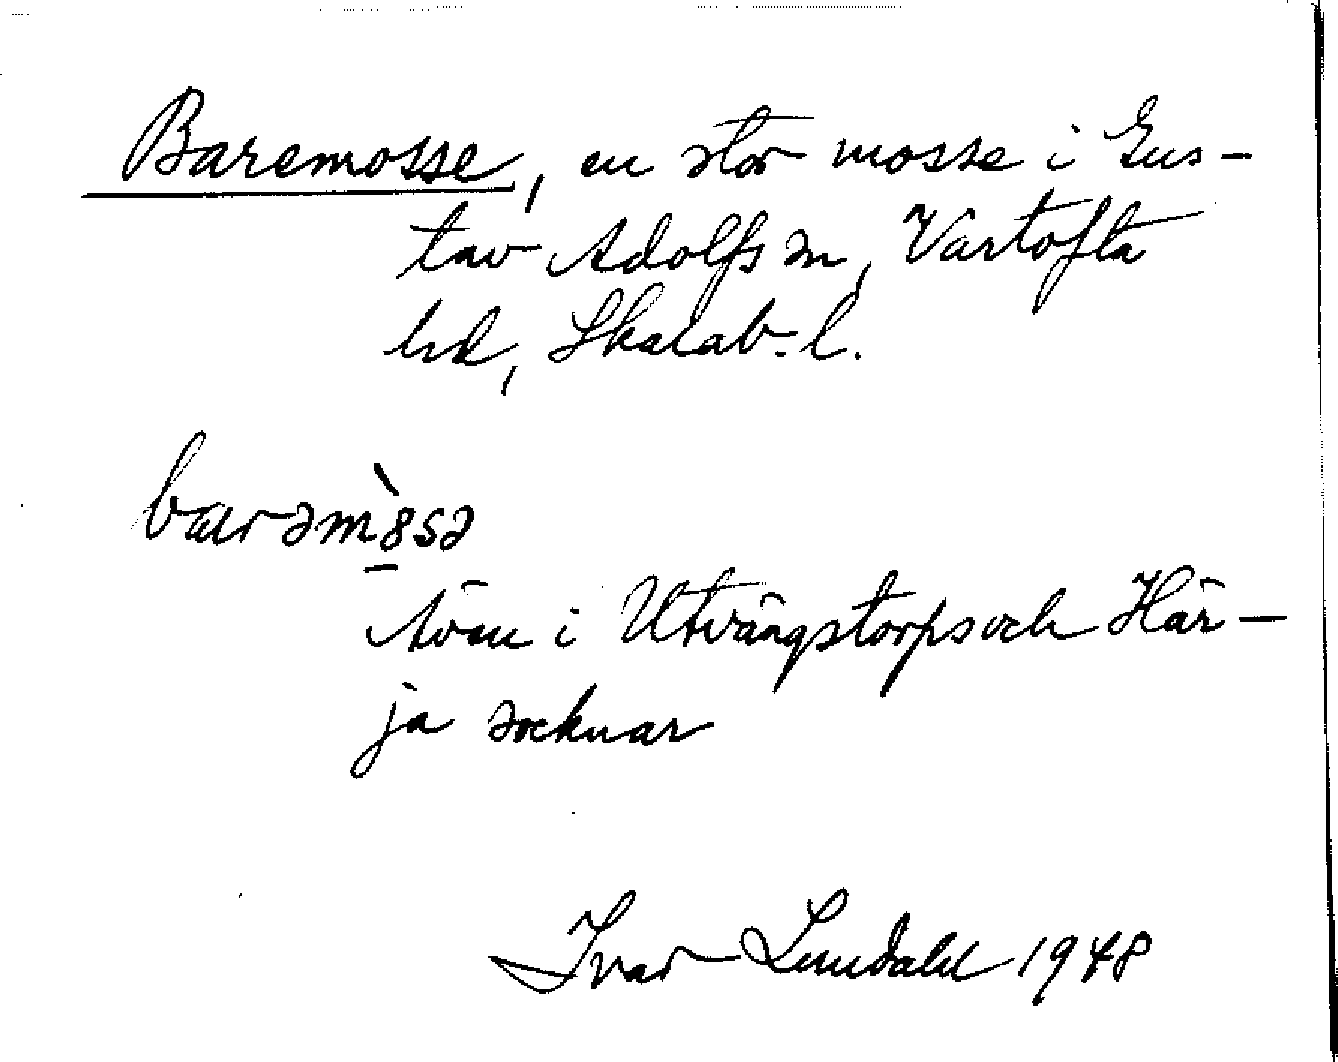 Baremosse, en stor mosse i Gus-
tav Adolfs sn, Vartofta
hd, Skarab. l.
barəm̀8sə
Även i Utvängstorps och Här-
ja socknar
Ivar Lundahl 1948